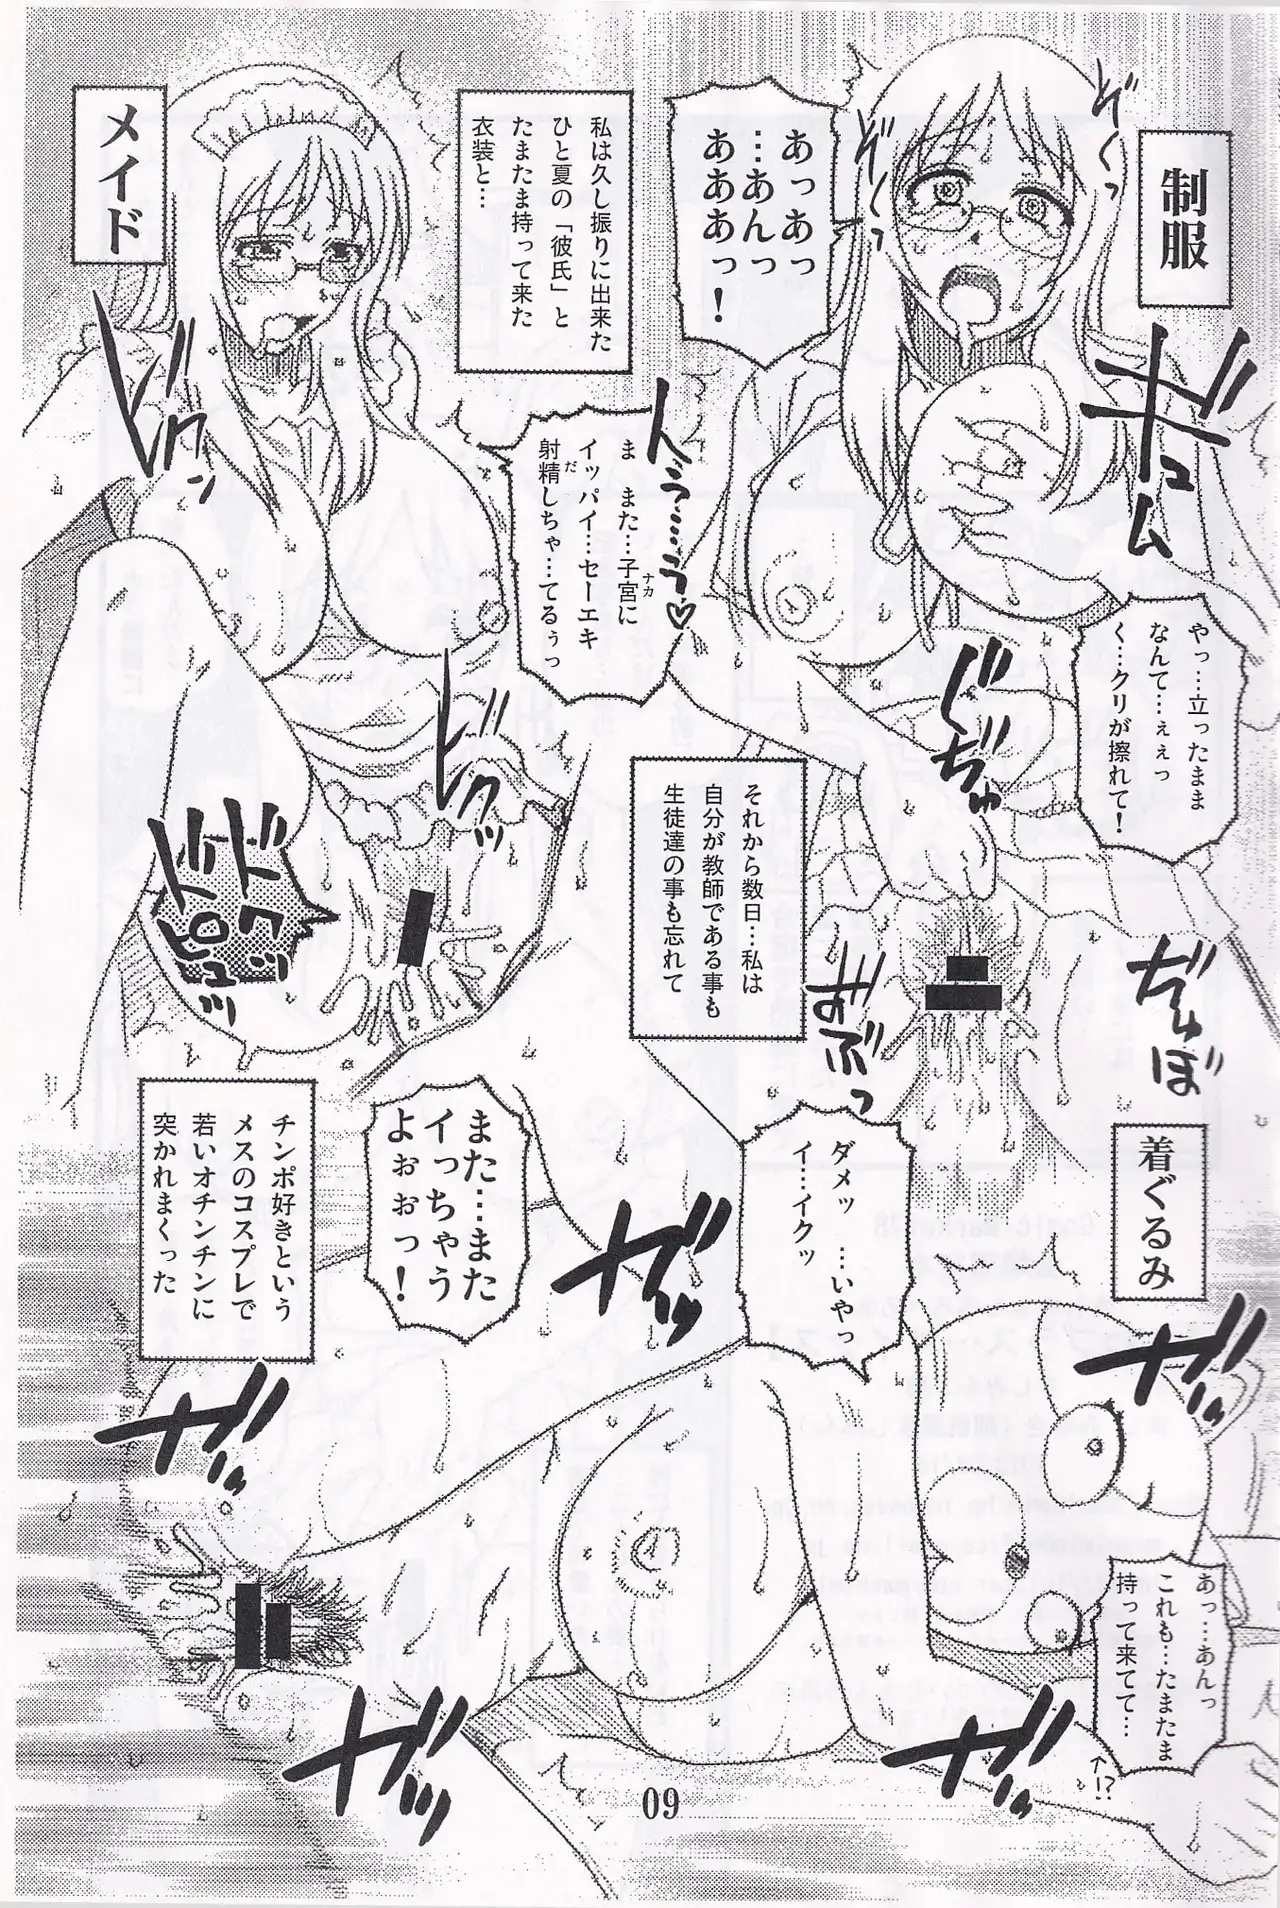 制服
ぞくっ
ぞくっ
あっあっ
…あんっ
あああっ！
私は久し振りに出来た
ひと夏の「彼氏」と
たまたま持って来た
衣装と…
メイド
ギュム
やっ…立ったまま
なんて…ぇぇっ
く…クリが擦れて！
んうう……うう♡
ま　また…子宮に
ナカ
イッパイ…セーエキ
射精しちゃ…てるぅっ
だ
ドクン
ぶぢゅ
ドクッ
それから数日…私は
自分が教師である事も
生徒達の事も忘れて
ドクドクッ
ドピュッ
ぢゅぼ
まぶっ
着ぐるみ
ダメッ　…いやっ
イ…イクッ
また…また
イっちゃう
よぉぉっ！
チンポ好きという
メスのコスプレで
若いオチンチンに
突かれまくった
ザッ
ザッ
ザッ
あっ…あんっ
これも…たまたま
持って来てて…
←!?
ザッ
ザッ
09